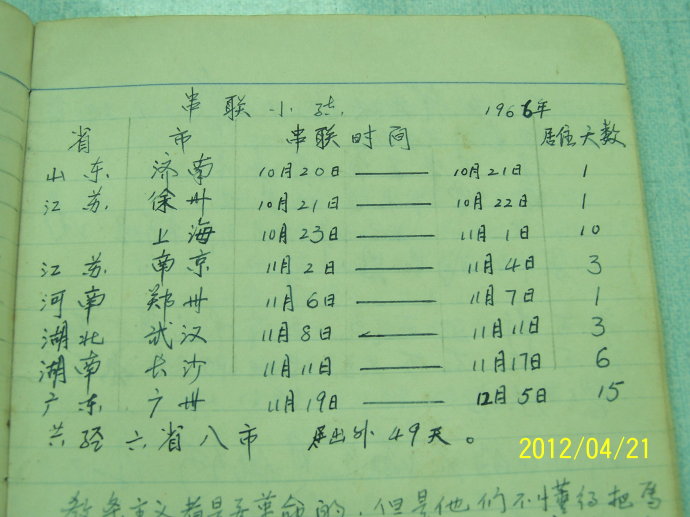 串联小结 1966年
省 市 串联时间 居住天数
山东 济南 10月20日 —— 10月21日 1
江苏 徐州 10月21日 —— 10月22日 1
上海 10月23日 —— 11月1日 10
江苏 南京 11月2日 —— 11月4日 3
河南 郑州 11月6日 —— 11月7日 1
湖北 武汉 11月8日 —— 11月11日 3
湖南 长沙 11月11日 —— 11月17日 6
广东 广州 11月19日 —— 12月5日 15
共经六省八市 出外49天。
2012/04/21
教条主义者是要革命的，但是他们不懂得把马